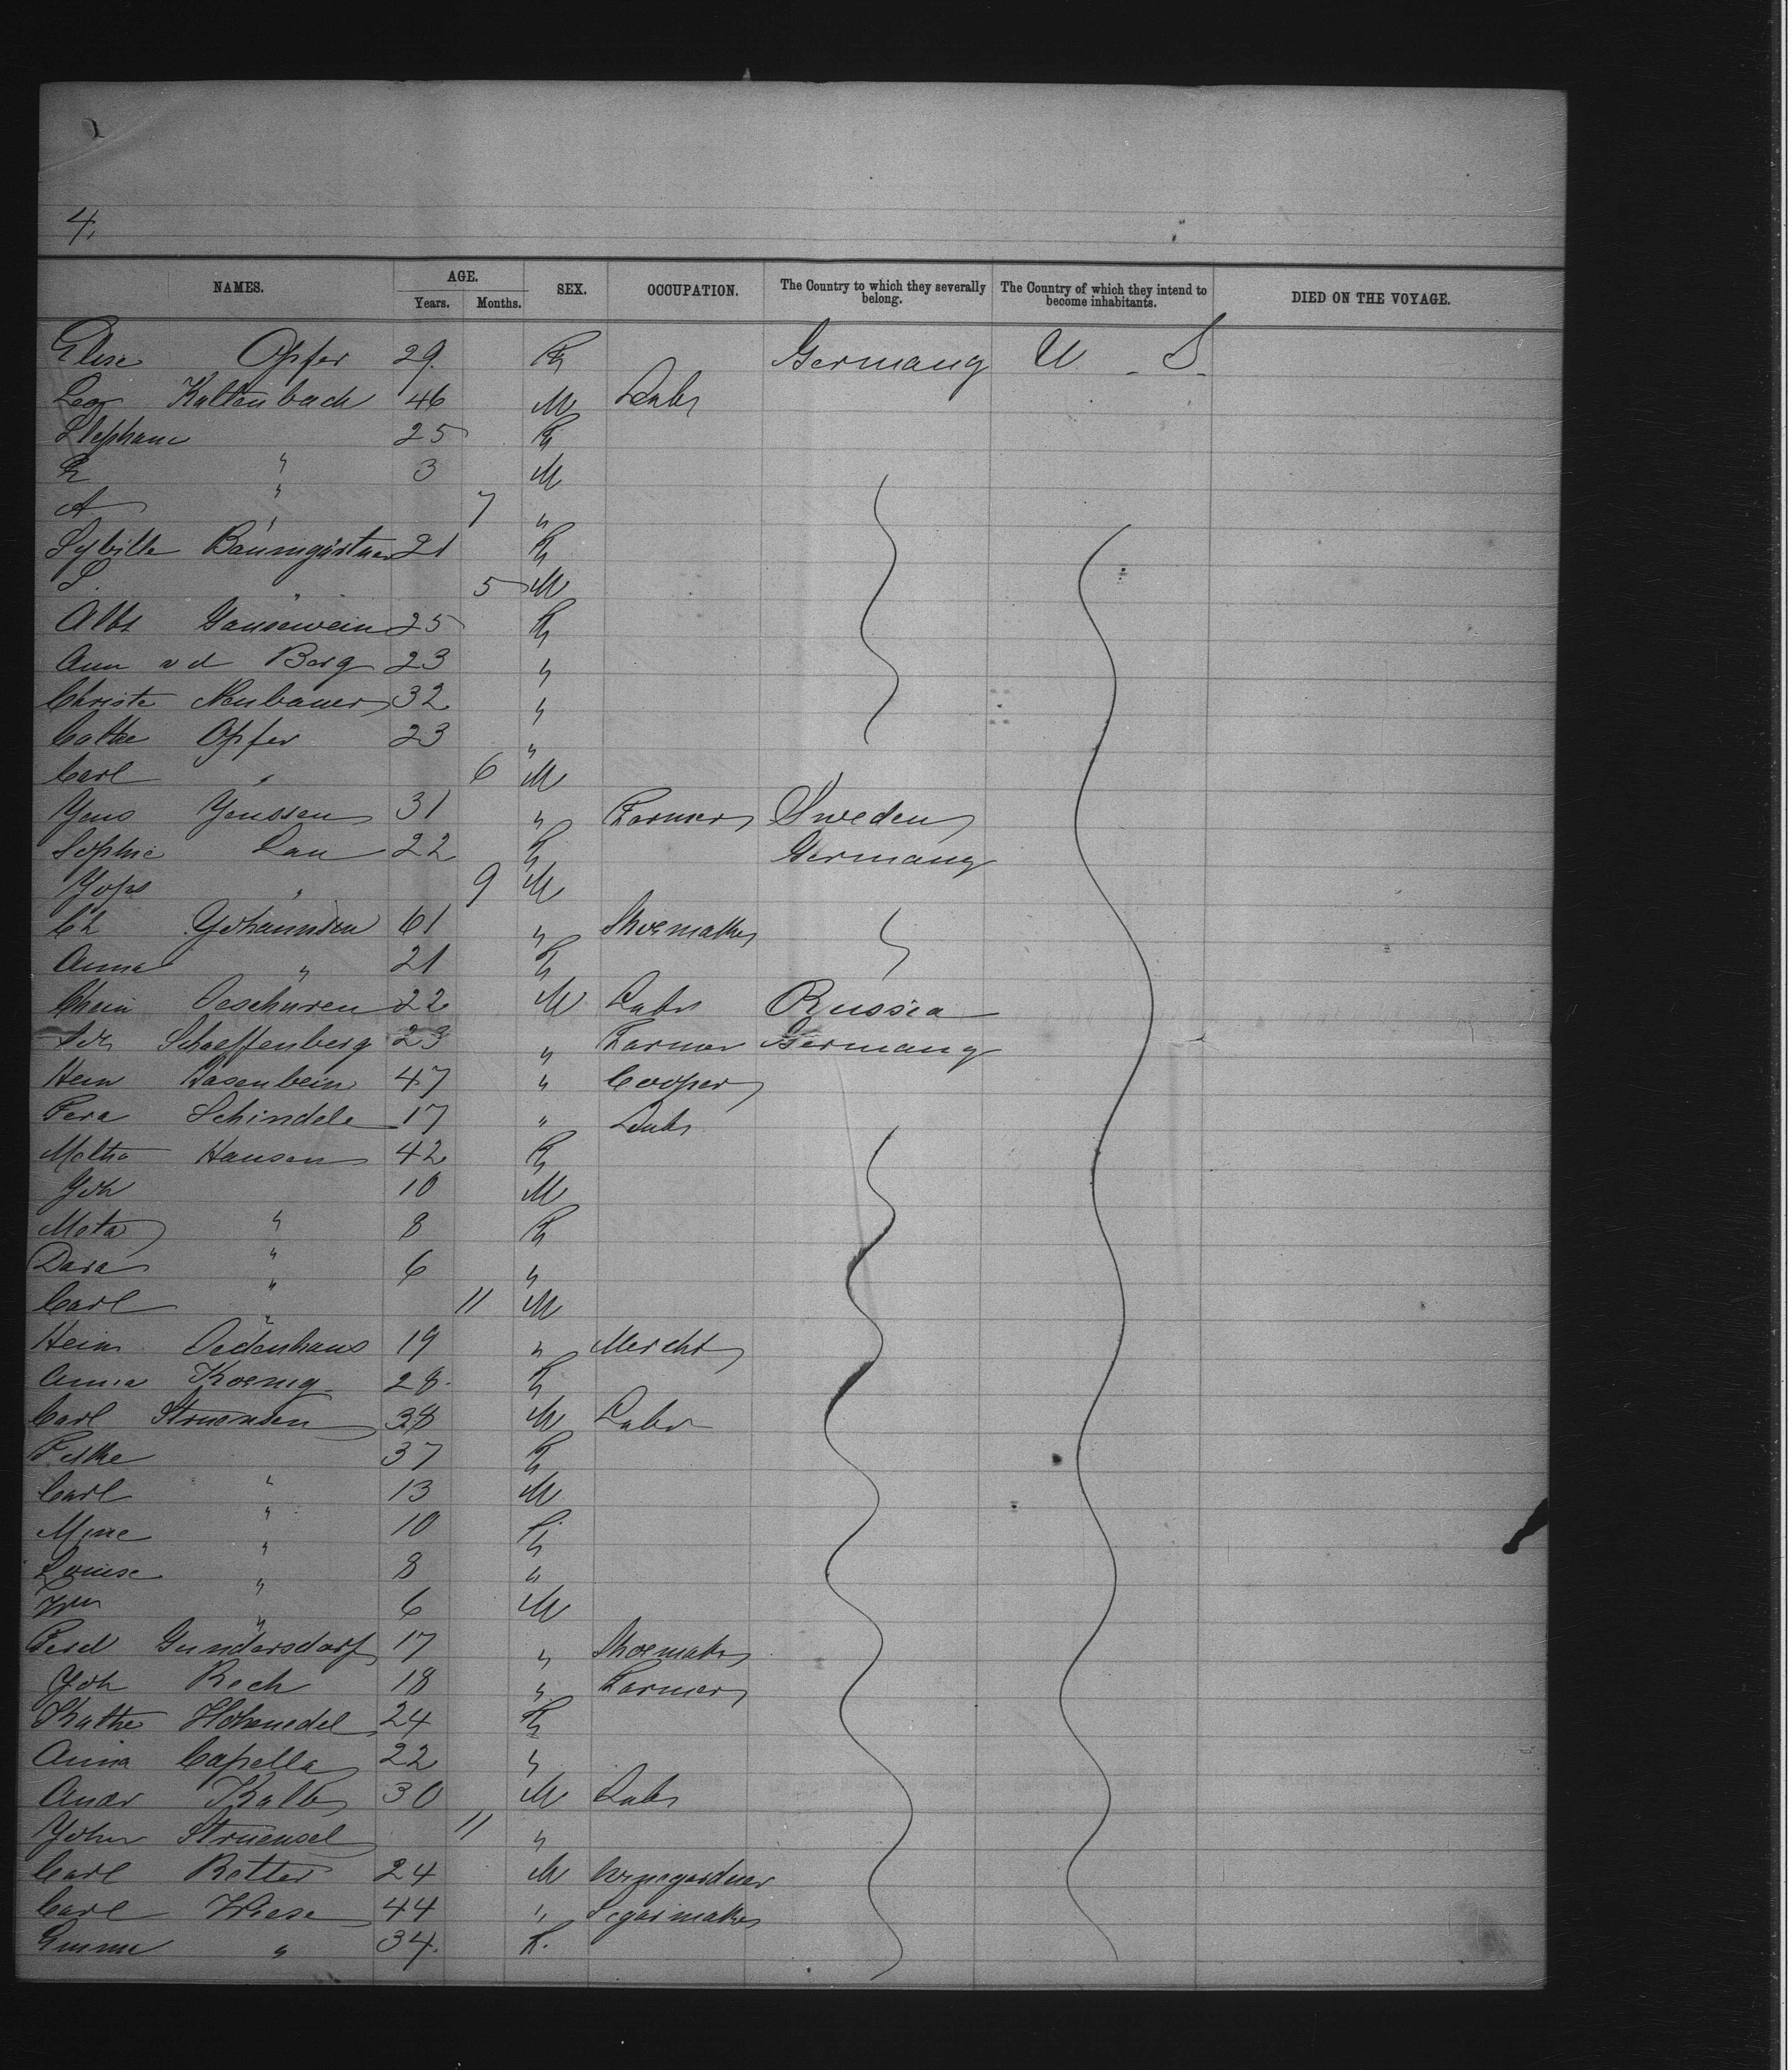 4.
NAMES. AGE. Years. Months. SEX. OCCUPATION. The Country to which they severally belong. The Country of which they intend to become inhabitants. DIED ON THE VOYAGE.
Elise Opfer 29. F Germany U. S.
Leo Kaltenbach 46 M Labr
Stephanie 25 F
F " 3 M
A " 7 "
Sybille " Baumgartner 21 F
S. " 5 M
Albt Gansewein 25 F
Ann v d Berg 23 "
Christe Neubauer 32 "
Cathe Opfer 23 "
Carl " 6 M
Yens Yenssen 31 " Farmer Sweden
Sophie Lau 22 F Germany
Yops " 9 M
Ch Yohannsen 61 " Shoemaker
Anna " 21 F
Chein Oeschuren 22 M Labr Russia
Schaeffenberg 23 " Farmer Germany
Hein Hasenbein 47 " Cooper
Fera Schindele 17 " Labr
Meltha Hansen 42 F
Yoh 10 M
Meta " 8 F
Dora " 6 "
Carl " 11 M
Hein " Oedenhaus 19 " Mercht
Anna Koenig 28. F
Carl Struensen 38 M Labr
37 F
Carl " 13 M
Mine " 10 F
Louise " 8 "
Wm " 6 M
Ferd " Gundersdorf 17 " Shoemaker
Yoh Rech 18 " Farmer
Kathe Hohenedel 24 F
Anna Capella 22 "
Andr Kalb 30 M Labr
Yohn Struensel 11 "
Carl Retter 24 M
Carl Wiese 44 " Segarmaker
Emma " 34. F.